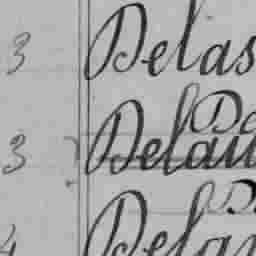 3 Delas
De
3 Delau
D
4 Delar